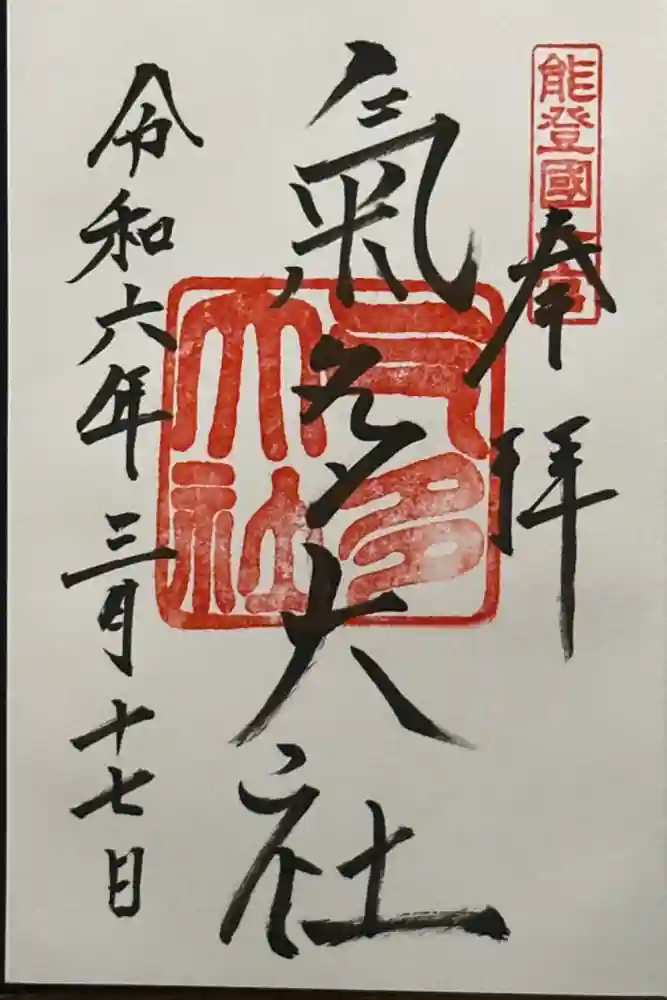 能登國一宮
奉拝
氣多大社
气多大社
令和六年三月十七日